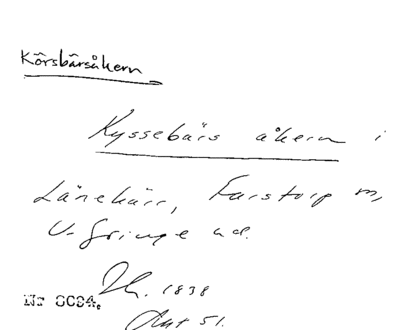 Körsbärsåkern
Kyssebärs åkern i
Länekärr, Farstorp m,
V. Gringe hd.
1838
Nr 8084.
Akt 51.